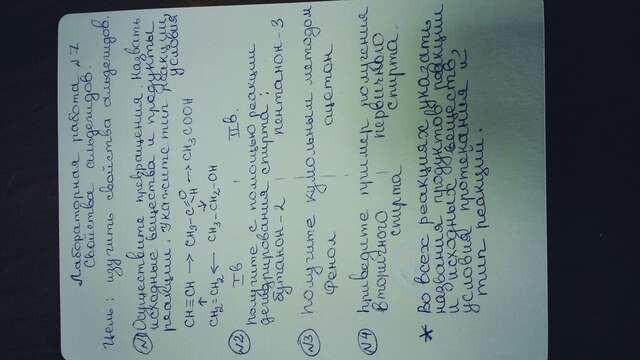 Лабораторная работа №7
Свойства альдегидов.
Цель: изучить свойства альдегидов.
№1 Осуществите превращения. Назвать
исходные вещества и продукты
реакции. Укажите тип реакции,
условия
CH≡CH → CH3-C=O H → CH3COOH
CH2=CH2 ← CH3-CH2-OH
Iв. IIв.
№2 Получите с помощью реакции
дегидрирования спирта:
бутанон-2 пентанон-3
№3 Получите кумольным методом
Фенол ацетон
№4 Приведите пример получения
вторичного первичного
спирта спирта.
* Во всех реакциях указать
названия продуктов реакции
и исходных веществ,
условия протекания и
тип реакции.